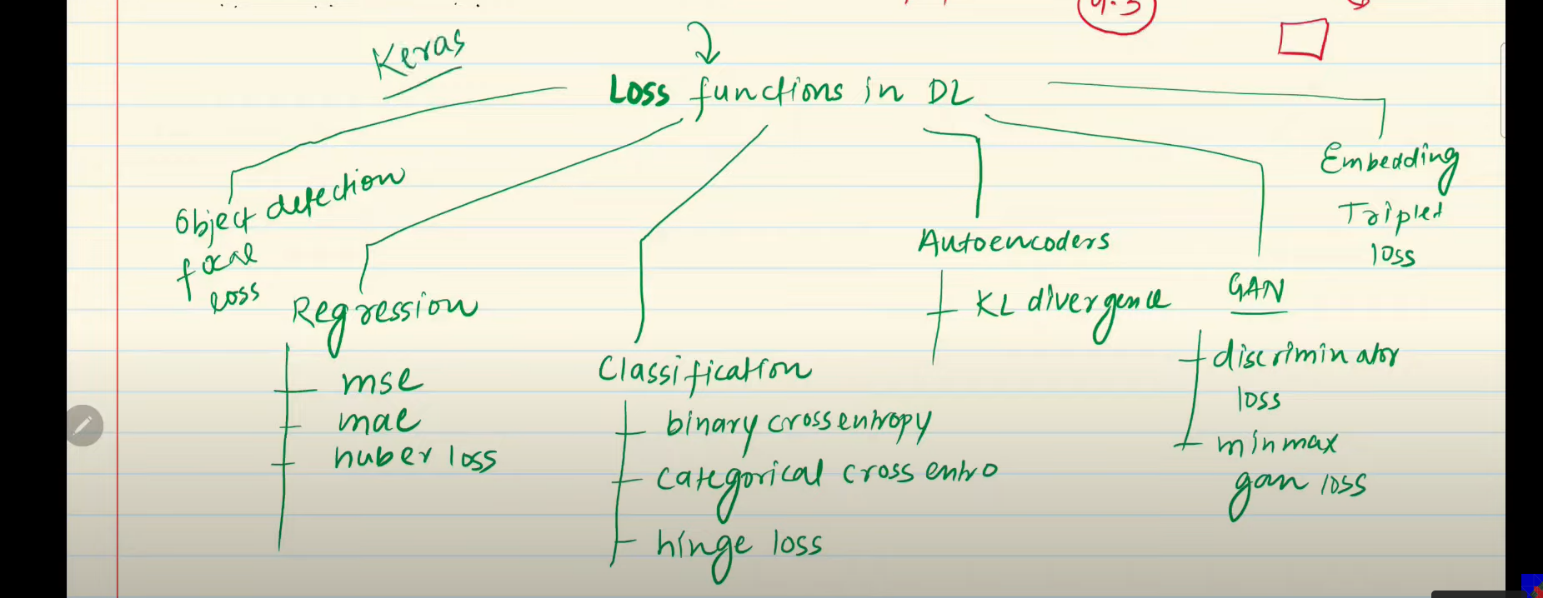 4.3
Keras
Loss functions in DL
Object detection
focal
loss
Regression
mse
mae
huber loss
Classification
binary crossentropy
categorical cross entro
hinge loss
Autoencoders
KL divergence
GAN
discriminator
loss
minmax
gan loss
Embedding
Triplet
loss